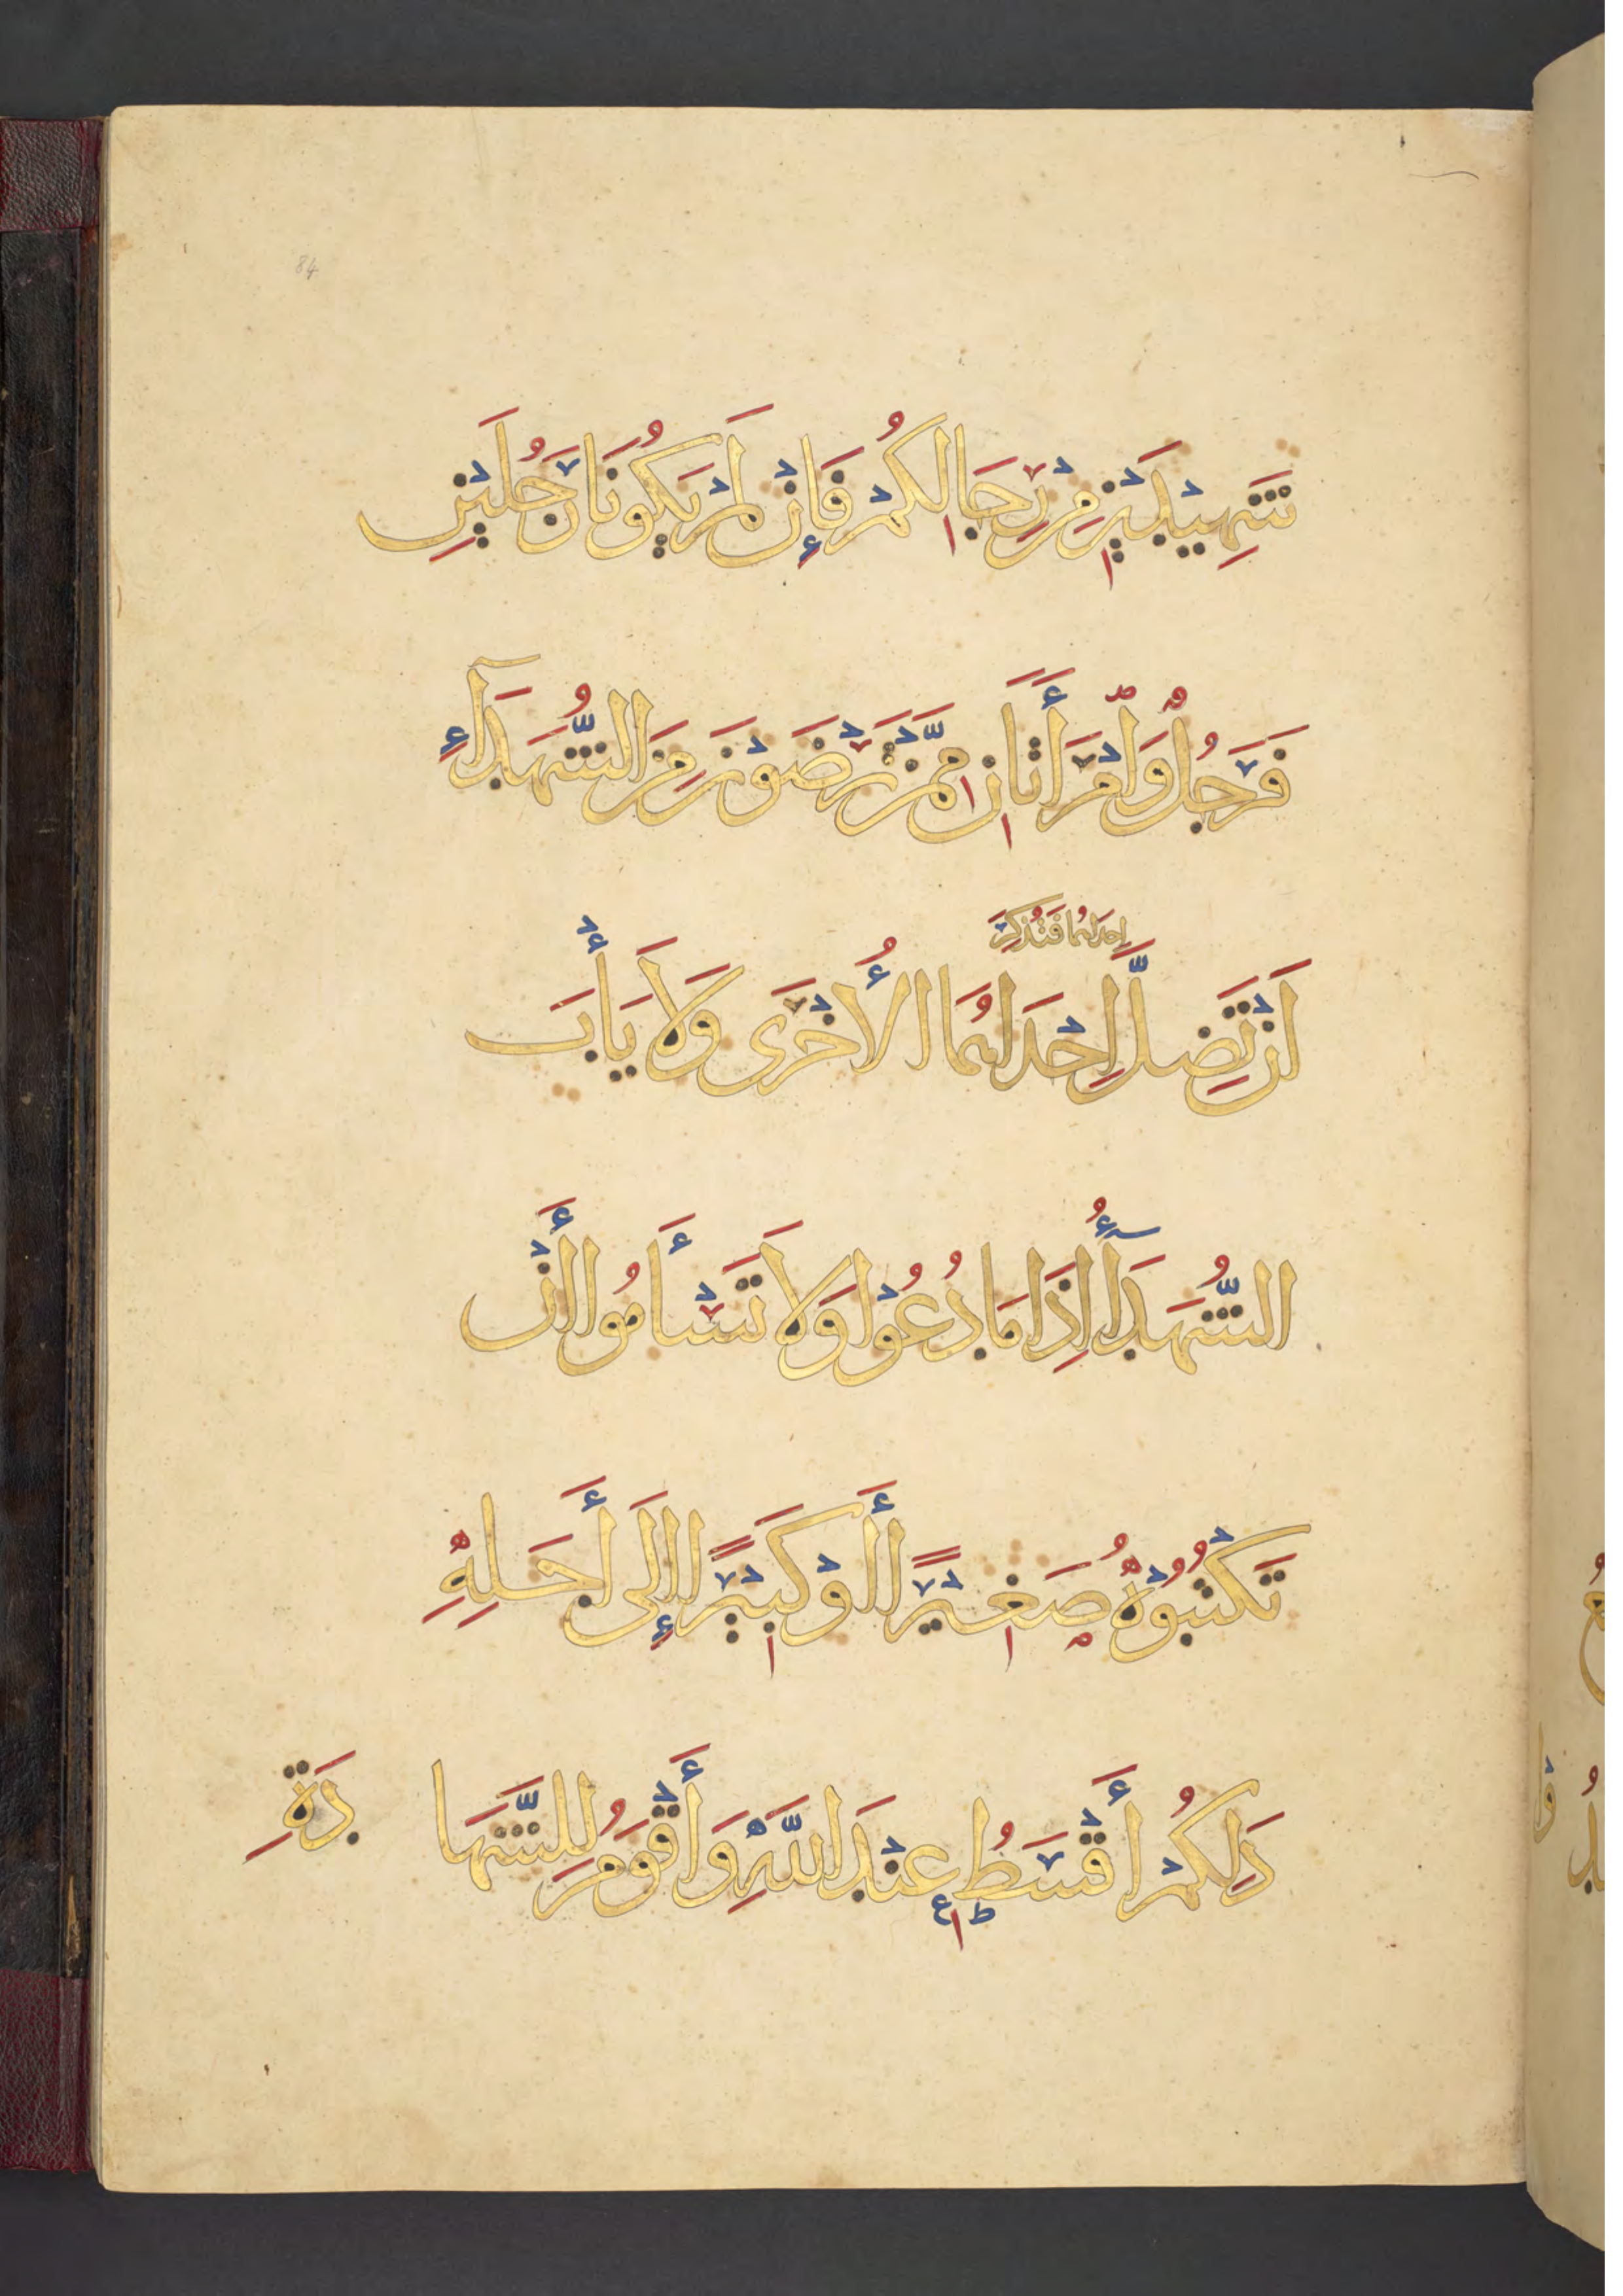 84
شَهِيْدَيْنِ مِنْ رِجَالِكُمْ فَإِنْ لَمْ يَكُوْنَا رَجُلَيْنِ
فَرَجُلٌ وَّامْرَأَتَانِ مِمَّنْ تَرْضَوْنَ مِنَ الشُّهَدَآءِ
إحداهُمَا فَتُذَكِرَ
اَنْ تَضِلَّ اِحْدَاهُمَا الأُخْرَى وَلَا يَأْبَ
الشُّهَدَآءُ اِذَا مَا دُعُوْا وَلَا تَسْأَمُوا أَنْ
تَكْتُبُوْهُ صَغِيْرًا أَوْ كَبِيْرًا إِلَى أَجَلِهِ
ذَلِكُمْ أَقْسَطُ عِنْدَ اللَّهِ وَأَقْوَمُ لِلشَّهَا دَةِ